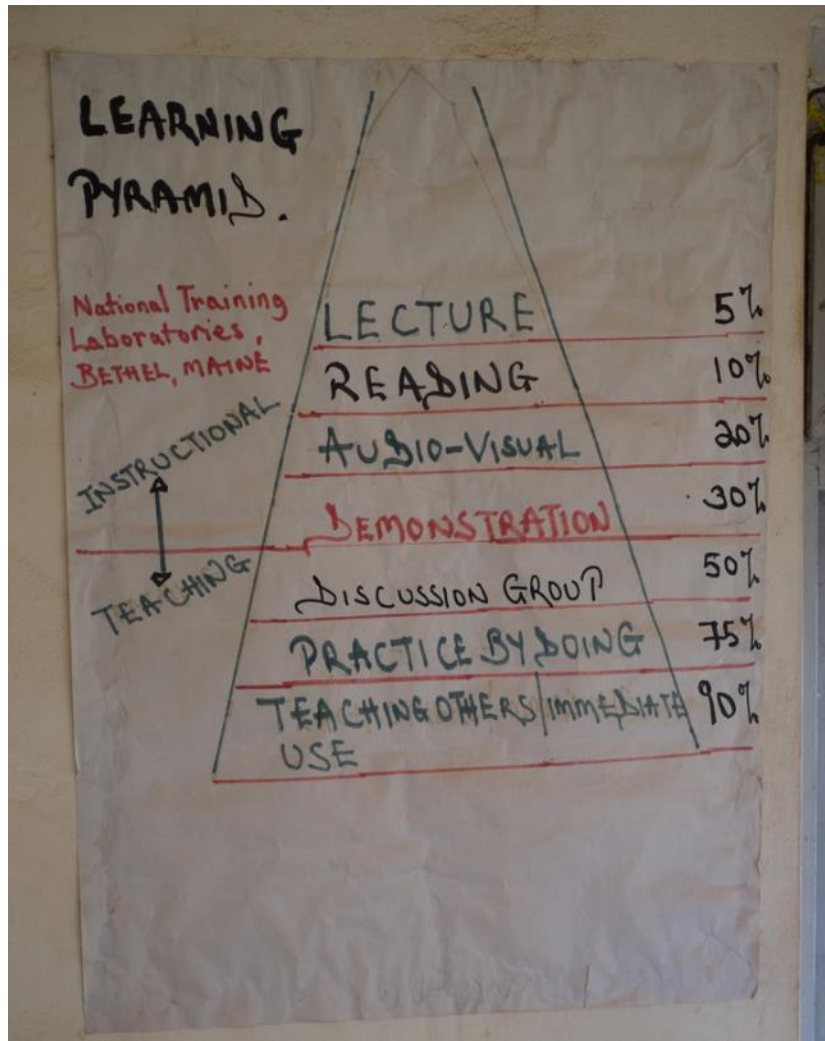 LEARNING
PYRAMID.
National Training
Laboratories,
BETHEL, MAINE
INSTRUCTIONAL
TEACHING
LECTURE 5%
READING 10%
AUDIO-VISUAL 20%
DEMONSTRATION 30%
DISCUSSION GROUP 50%
PRACTICE BY DOING 75%
TEACHING OTHERS/IMMEDIATE 90%
USE